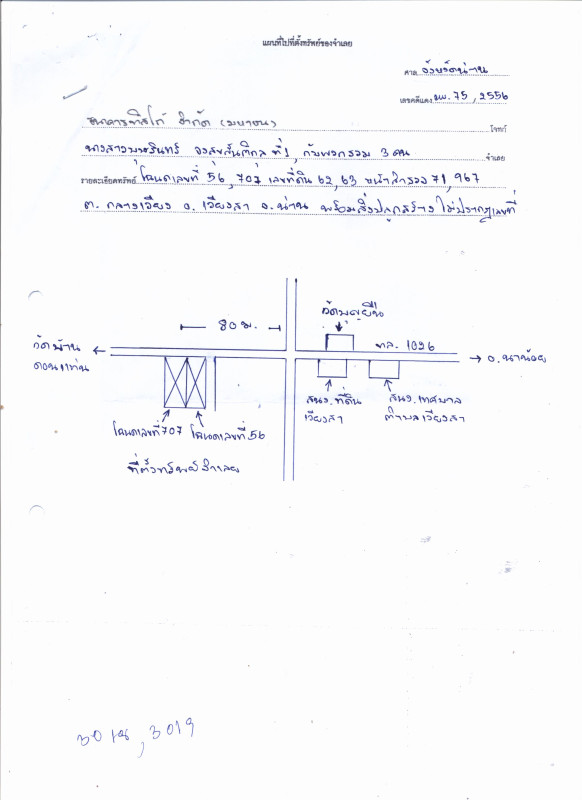 แผนที่ไปที่ตั้งทรัพย์ของจำเลย
ศาล จังหวัดน่าน
เลขคดีแดง ผบ. 75 / 2556
ธนาคารทิสโก้ จำกัด (มหาชน) โจทก์
นางสาว ที่ 1 , กับพวกรวม 3 คน จำเลย
รายละเอียดทรัพย์ โฉนดเลขที่ 56 , 707 เลขที่ดิน 62 , 63 หน้าสำรวจ 71 , 967
ต. กลางเวียง อ. เวียงสา จ. น่าน พร้อมสิ่งปลูกสร้าง ไม่ปรากฏเลขที่
วัดบุญยืน
80 ม.
ทล. 1026
วัดบ้าน
ดอนแท่น
อ. นาน้อย
สนง. ที่ดิน
เวียงสา
สนง. เทศบาล
ตำบลเวียงสา
โฉนดเลขที่ 707 โฉนดเลขที่ 56
ที่ตั้งทรัพย์จำเลย